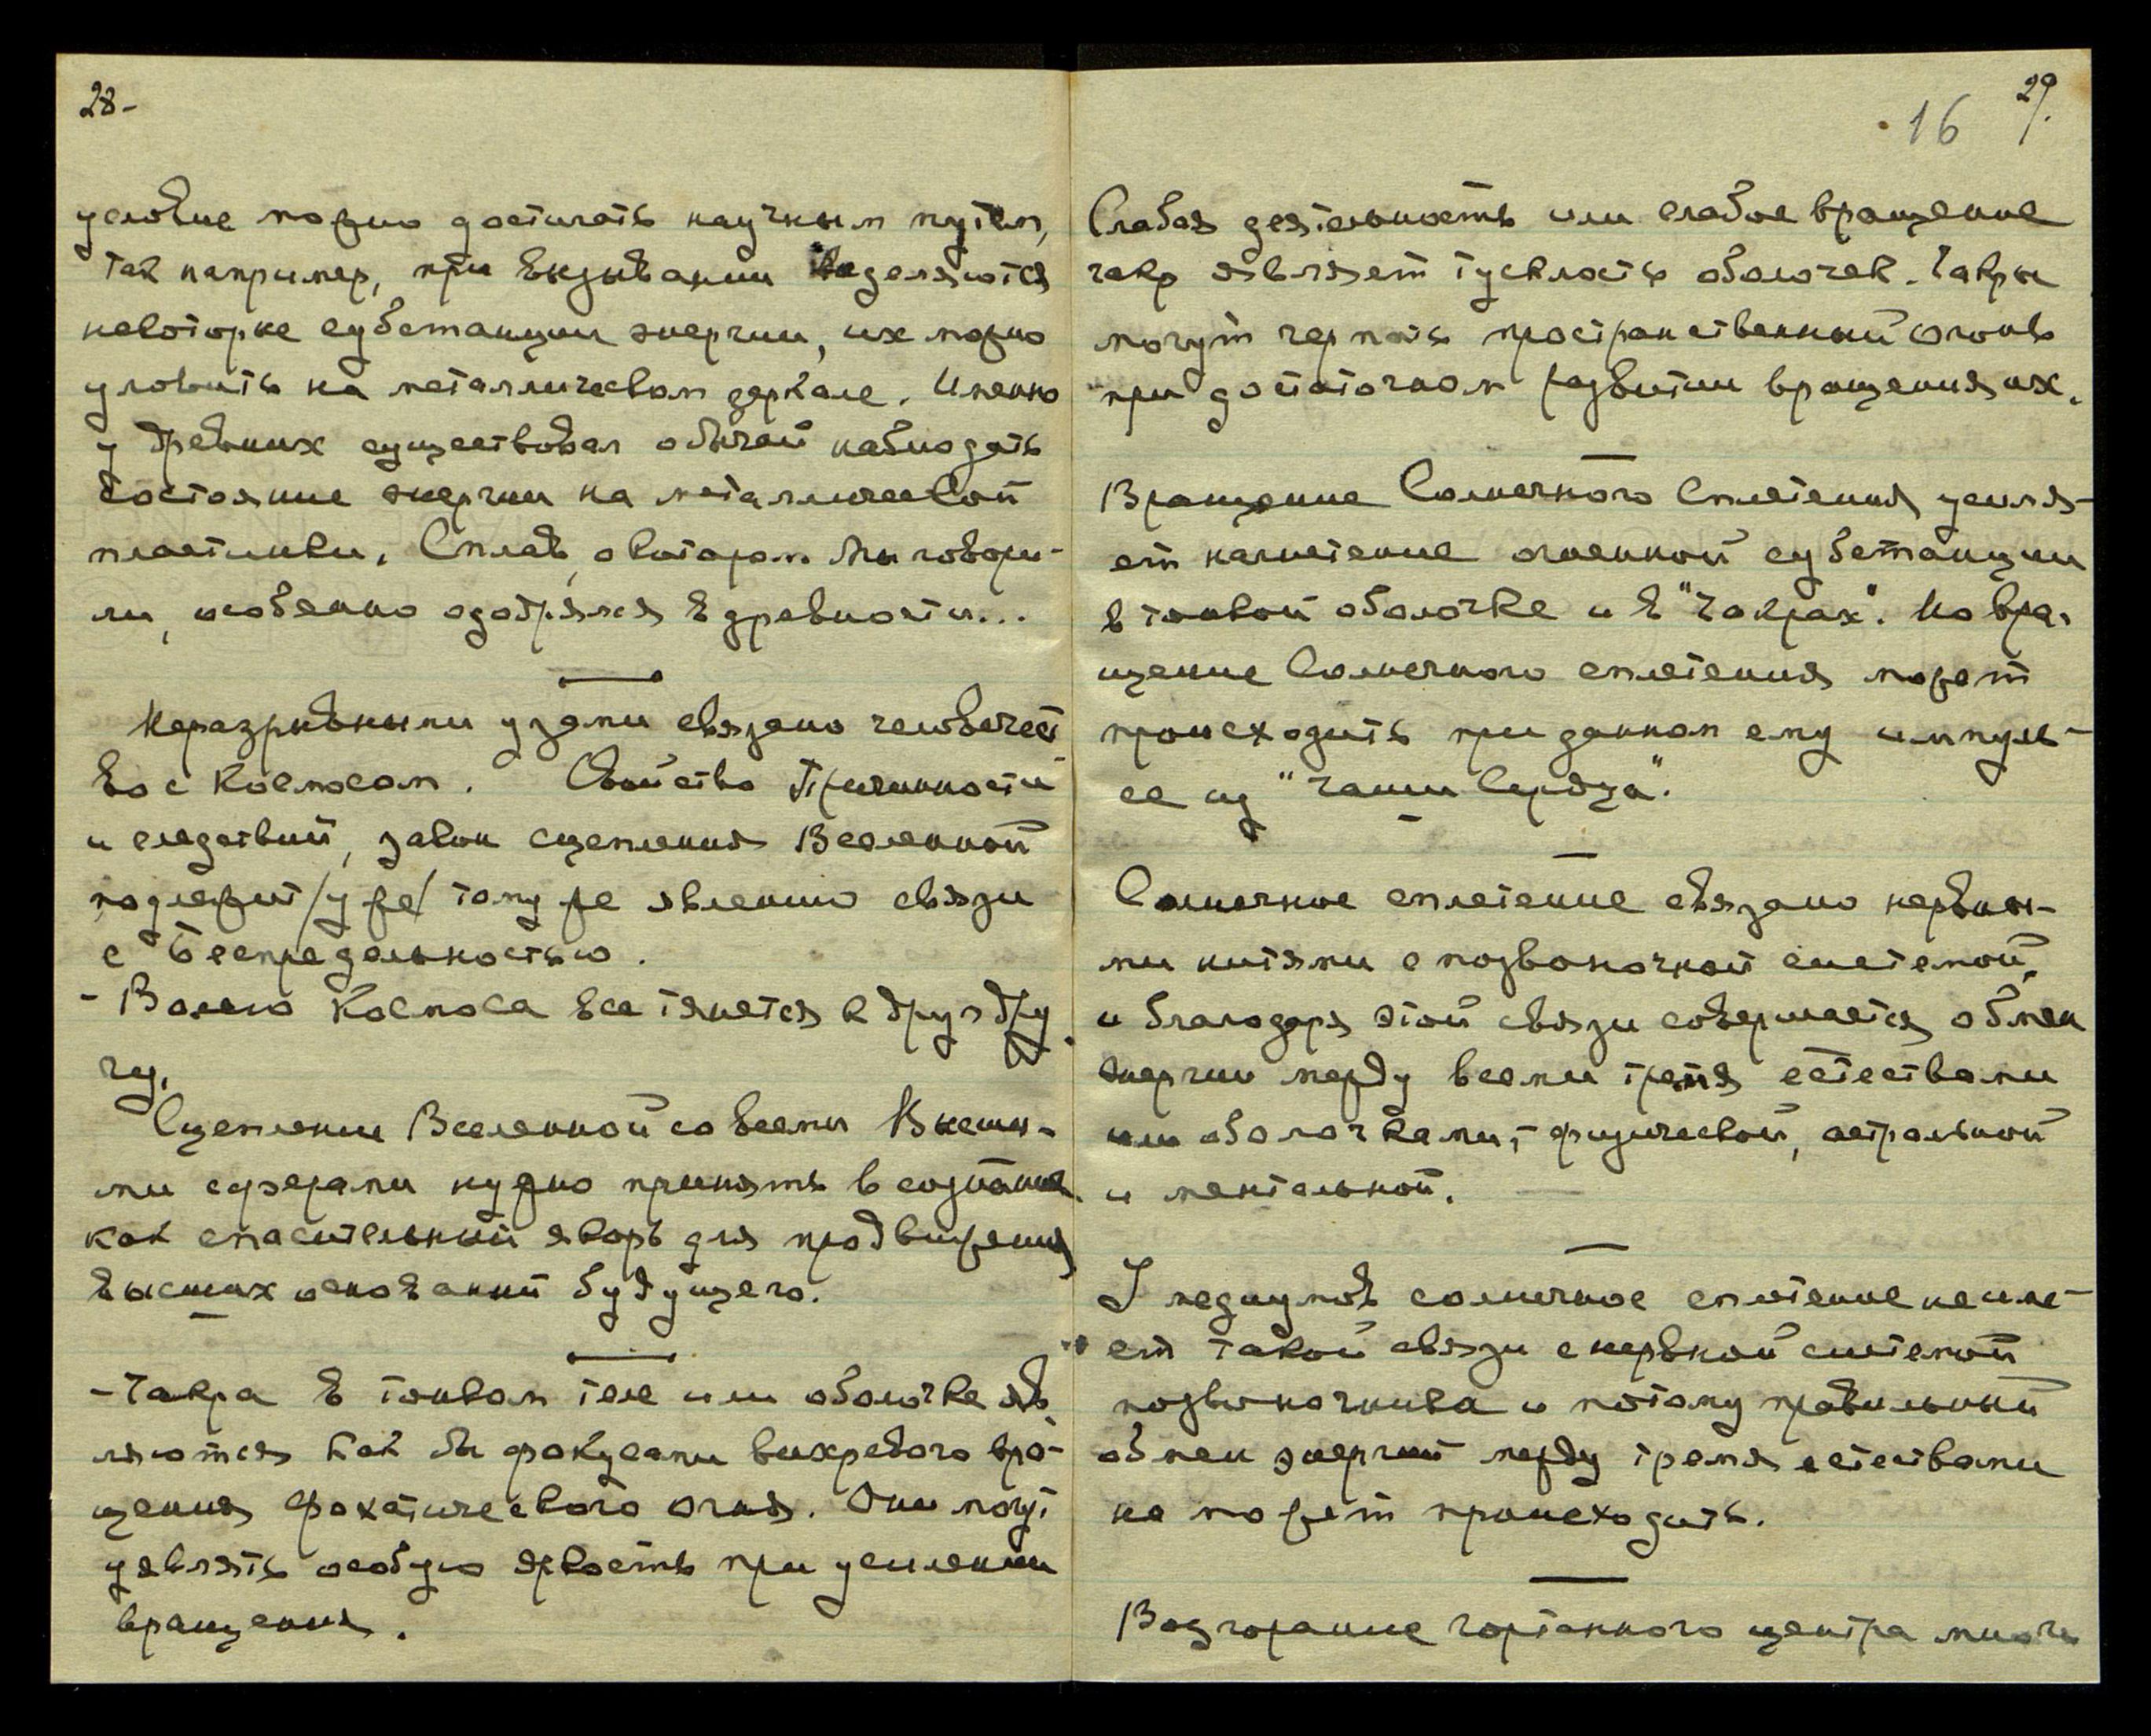 28-
условие можно достигать научным путем,
так например, при вызывании выделяются
некоторые субстанции энергии, их можно
уловить на металлическом зеркале. Именно
у древних существовал обычай наблюдать
состояние энергии на металлической
пластинки. Сплав, о котором Мы говори-
ли, особенно одобрялся в древности...
Неразрывными узами связано человечест
во с Космосом. Свойство Причинности
и следствий, закон сцепления Вселенной
подлежит /уже/ тому же явлению связи
с Беспредельностью.
- Волею Космоса все тянется к друг дру
гу.
Сцеплении Вселенной со всеми Высши-
ми сферами нужно принять в сознание
как спасительный якорь для продвижения
высших оснований будущего.
- Чакра в тонком теле или оболочке яв
ляются как бы фокусами вихревого вра-
щения фохатического огня. Они могут
уявлять особую яркость при усилении
вращения.
29.
16
Слабая деятельность или слабое вращение
чакр являет тусклость оболочек. Чакры
могут черпать пространственный огонь
при достаточном развитии вращения их.
Вращение Солнечного Сплетения усиля-
ет нагнетение огненной субстанции
в тонкой оболочке и в "чакрах". Но вра-
щение Солнечного сплетения может
происходить при данном ему импуль-
се из "Чаши Сердца".
Солнечное сплетение связано нервны-
ми нитями с позвоночной системой,
и благодаря этой связи совершается обмен
энергии между всеми тремя естествами
или оболочками,- физической, астральной
и ментальной.
У медиумов солнечное сплетение не име-
ет такой связи с нервной системой
позвоночника и потому правильный
обмен энергий между тремя естествами
не может происходить.
Возгорание гортанного центра много